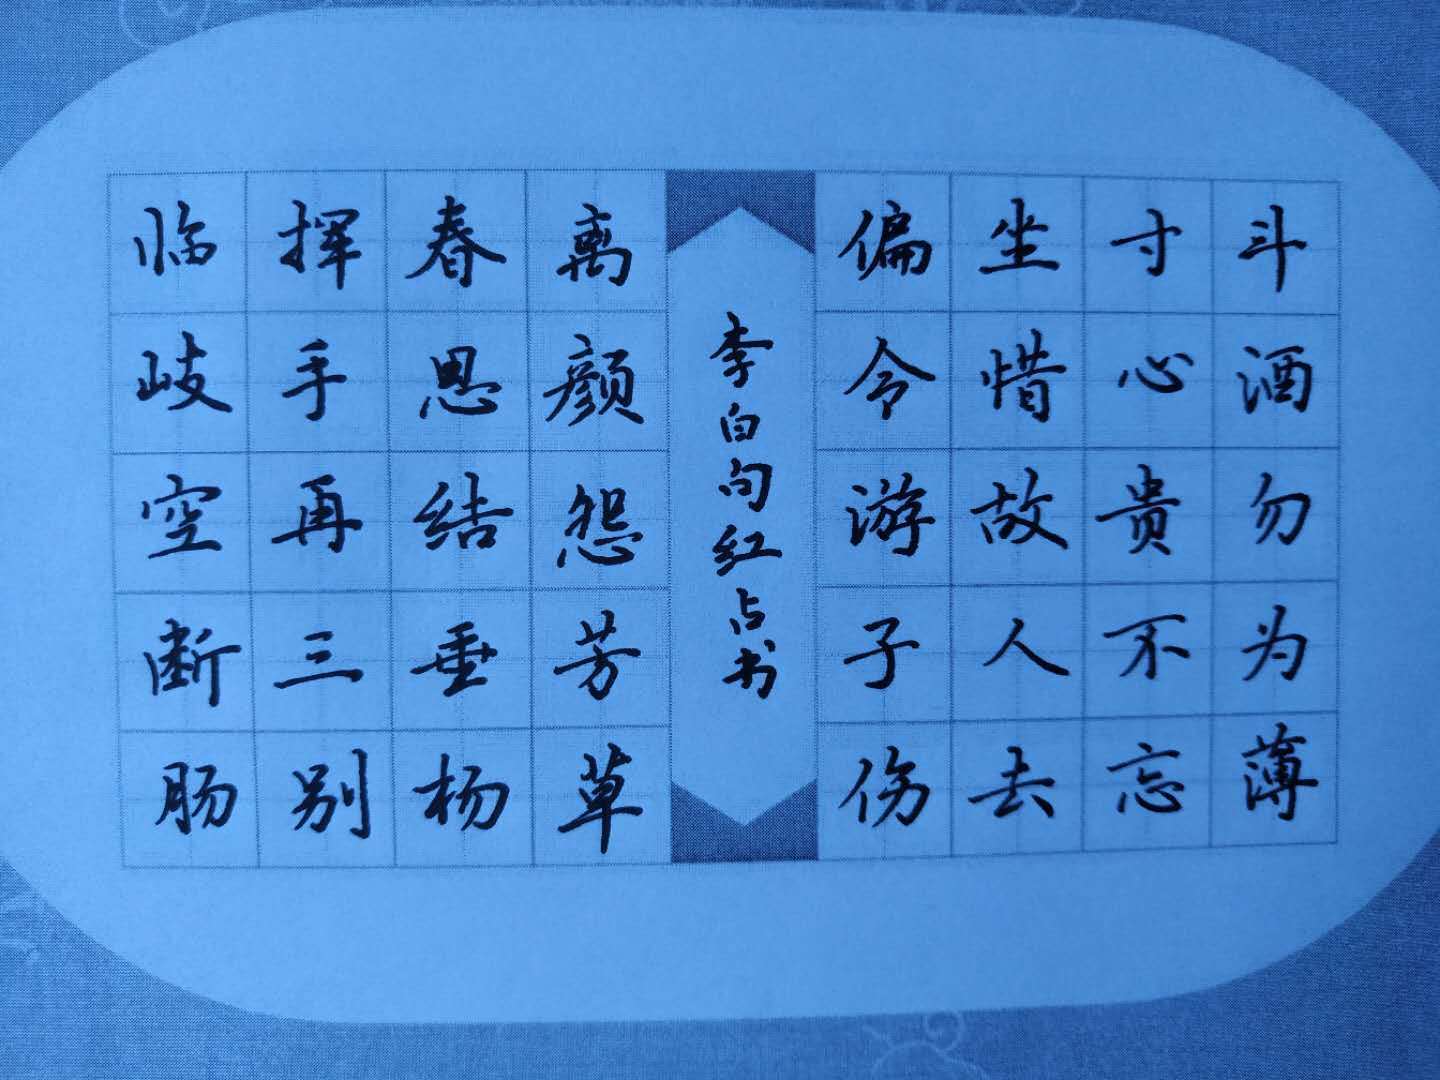 斗酒勿为薄
寸心贵不忘
坐惜故人去
偏令游子伤
李白句红占书
离颜怨芳草
春思结垂杨
挥手再三别
临岐空断肠